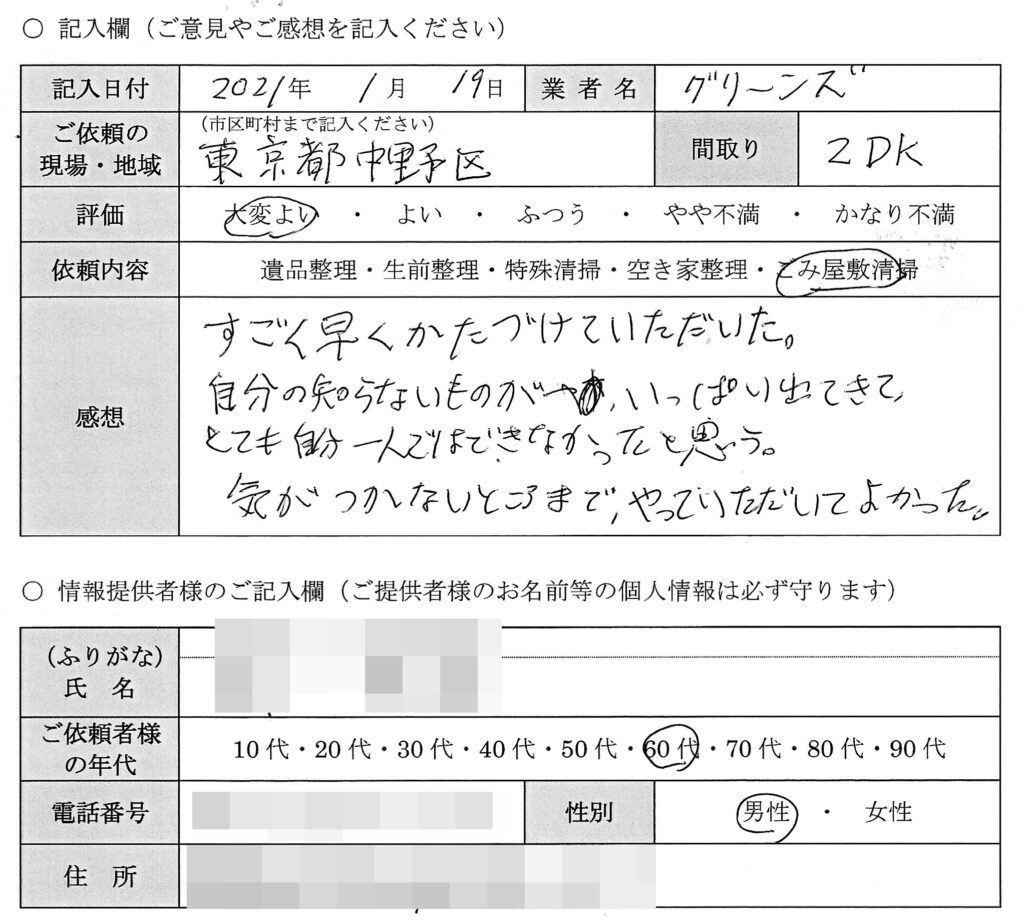 ○ 記入欄（ご意見やご感想を記入ください）
記入日付 2021年 1月 19日 業者名 グリーンズ
ご依頼の現場・地域 （市区町村まで記入ください） 東京都中野区 間取り 2DK
評価 大変よい ・ よい ・ ふつう ・ やや不満 ・ かなり不満
依頼内容 遺品整理・生前整理・特殊清掃・空き家整理・ごみ屋敷清掃
感想
すごく早くかたづけていただいた。
自分の知らないものが、いっぱい出てきて、
とても自分一人ではできなかったと思う。
気がつかないところまで、やっていただいてよかった。
○ 情報提供者様のご記入欄（ご提供者様のお名前等の個人情報は必ず守ります）
（ふりがな）
氏 名
ご依頼者様の年代 10代・20代・30代・40代・50代・60代・70代・80代・90代
電話番号 性別 男性 ・ 女性
住 所